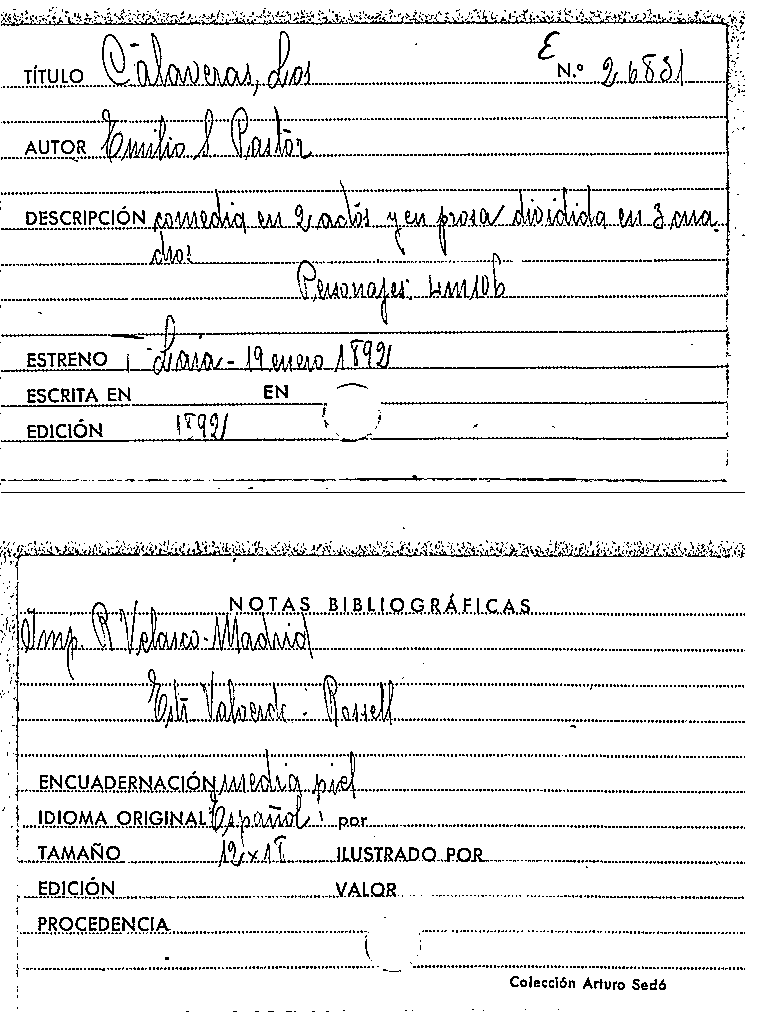 E
TÍTULO Calaveras, Los N.º 26831
AUTOR Emilio S Pastor
DESCRIPCIÓN comedia en 2 actos y en prosa dividida en 3 cua
dros
Personajes: 4m 10h
ESTRENO Lara - 19 enero 1892
ESCRITA EN EN
EDICIÓN 1892
NOTAS BIBLIOGRÁFICAS
Imp. R Velasco - Madrid
Estr Valverde - Rossell
ENCUADERNACIÓN media piel
IDIOMA ORIGINAL Español por
TAMAÑO 12 x 18 ILUSTRADO POR
EDICIÓN VALOR
PROCEDENCIA
Colección Arturo Sedó